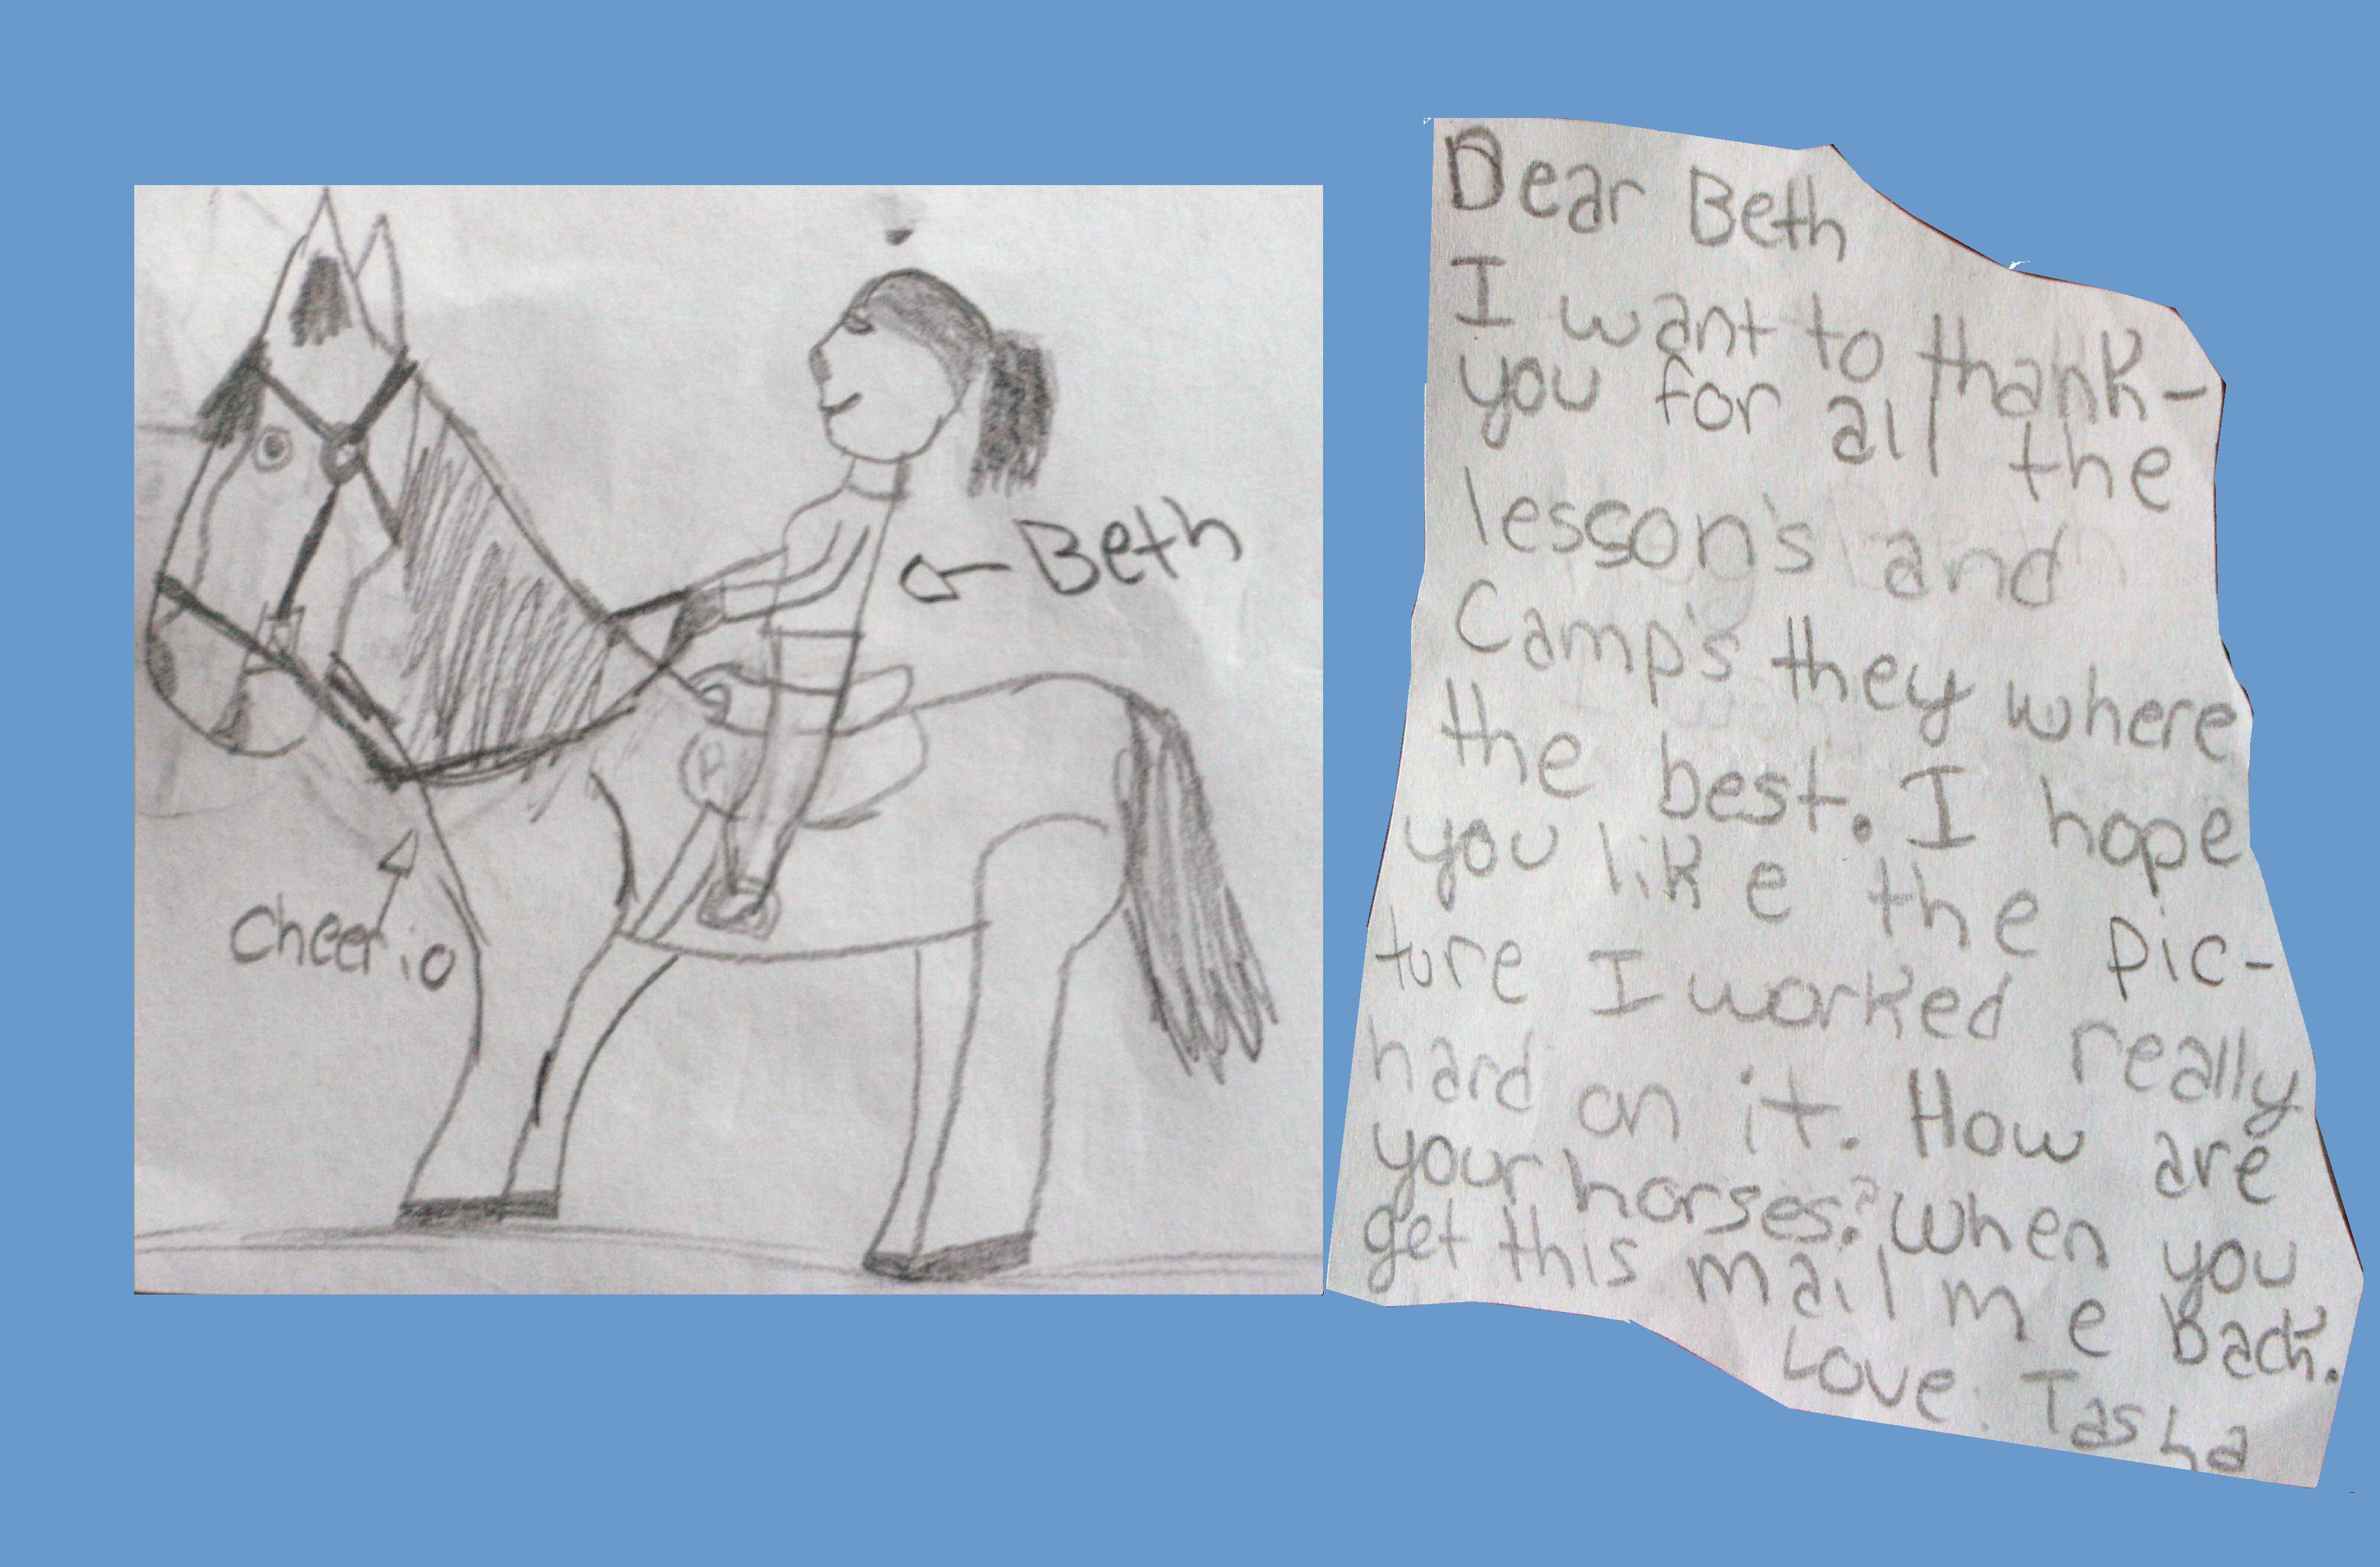 Beth
Cheerio
Dear Beth
I want to thank-
you for all the
lesson's and
Camp's they where
the best. I hope
you like the pic-
ture I worked really
hard on it. How are
your horses? When you
get this mail me back.
Love: Tasha